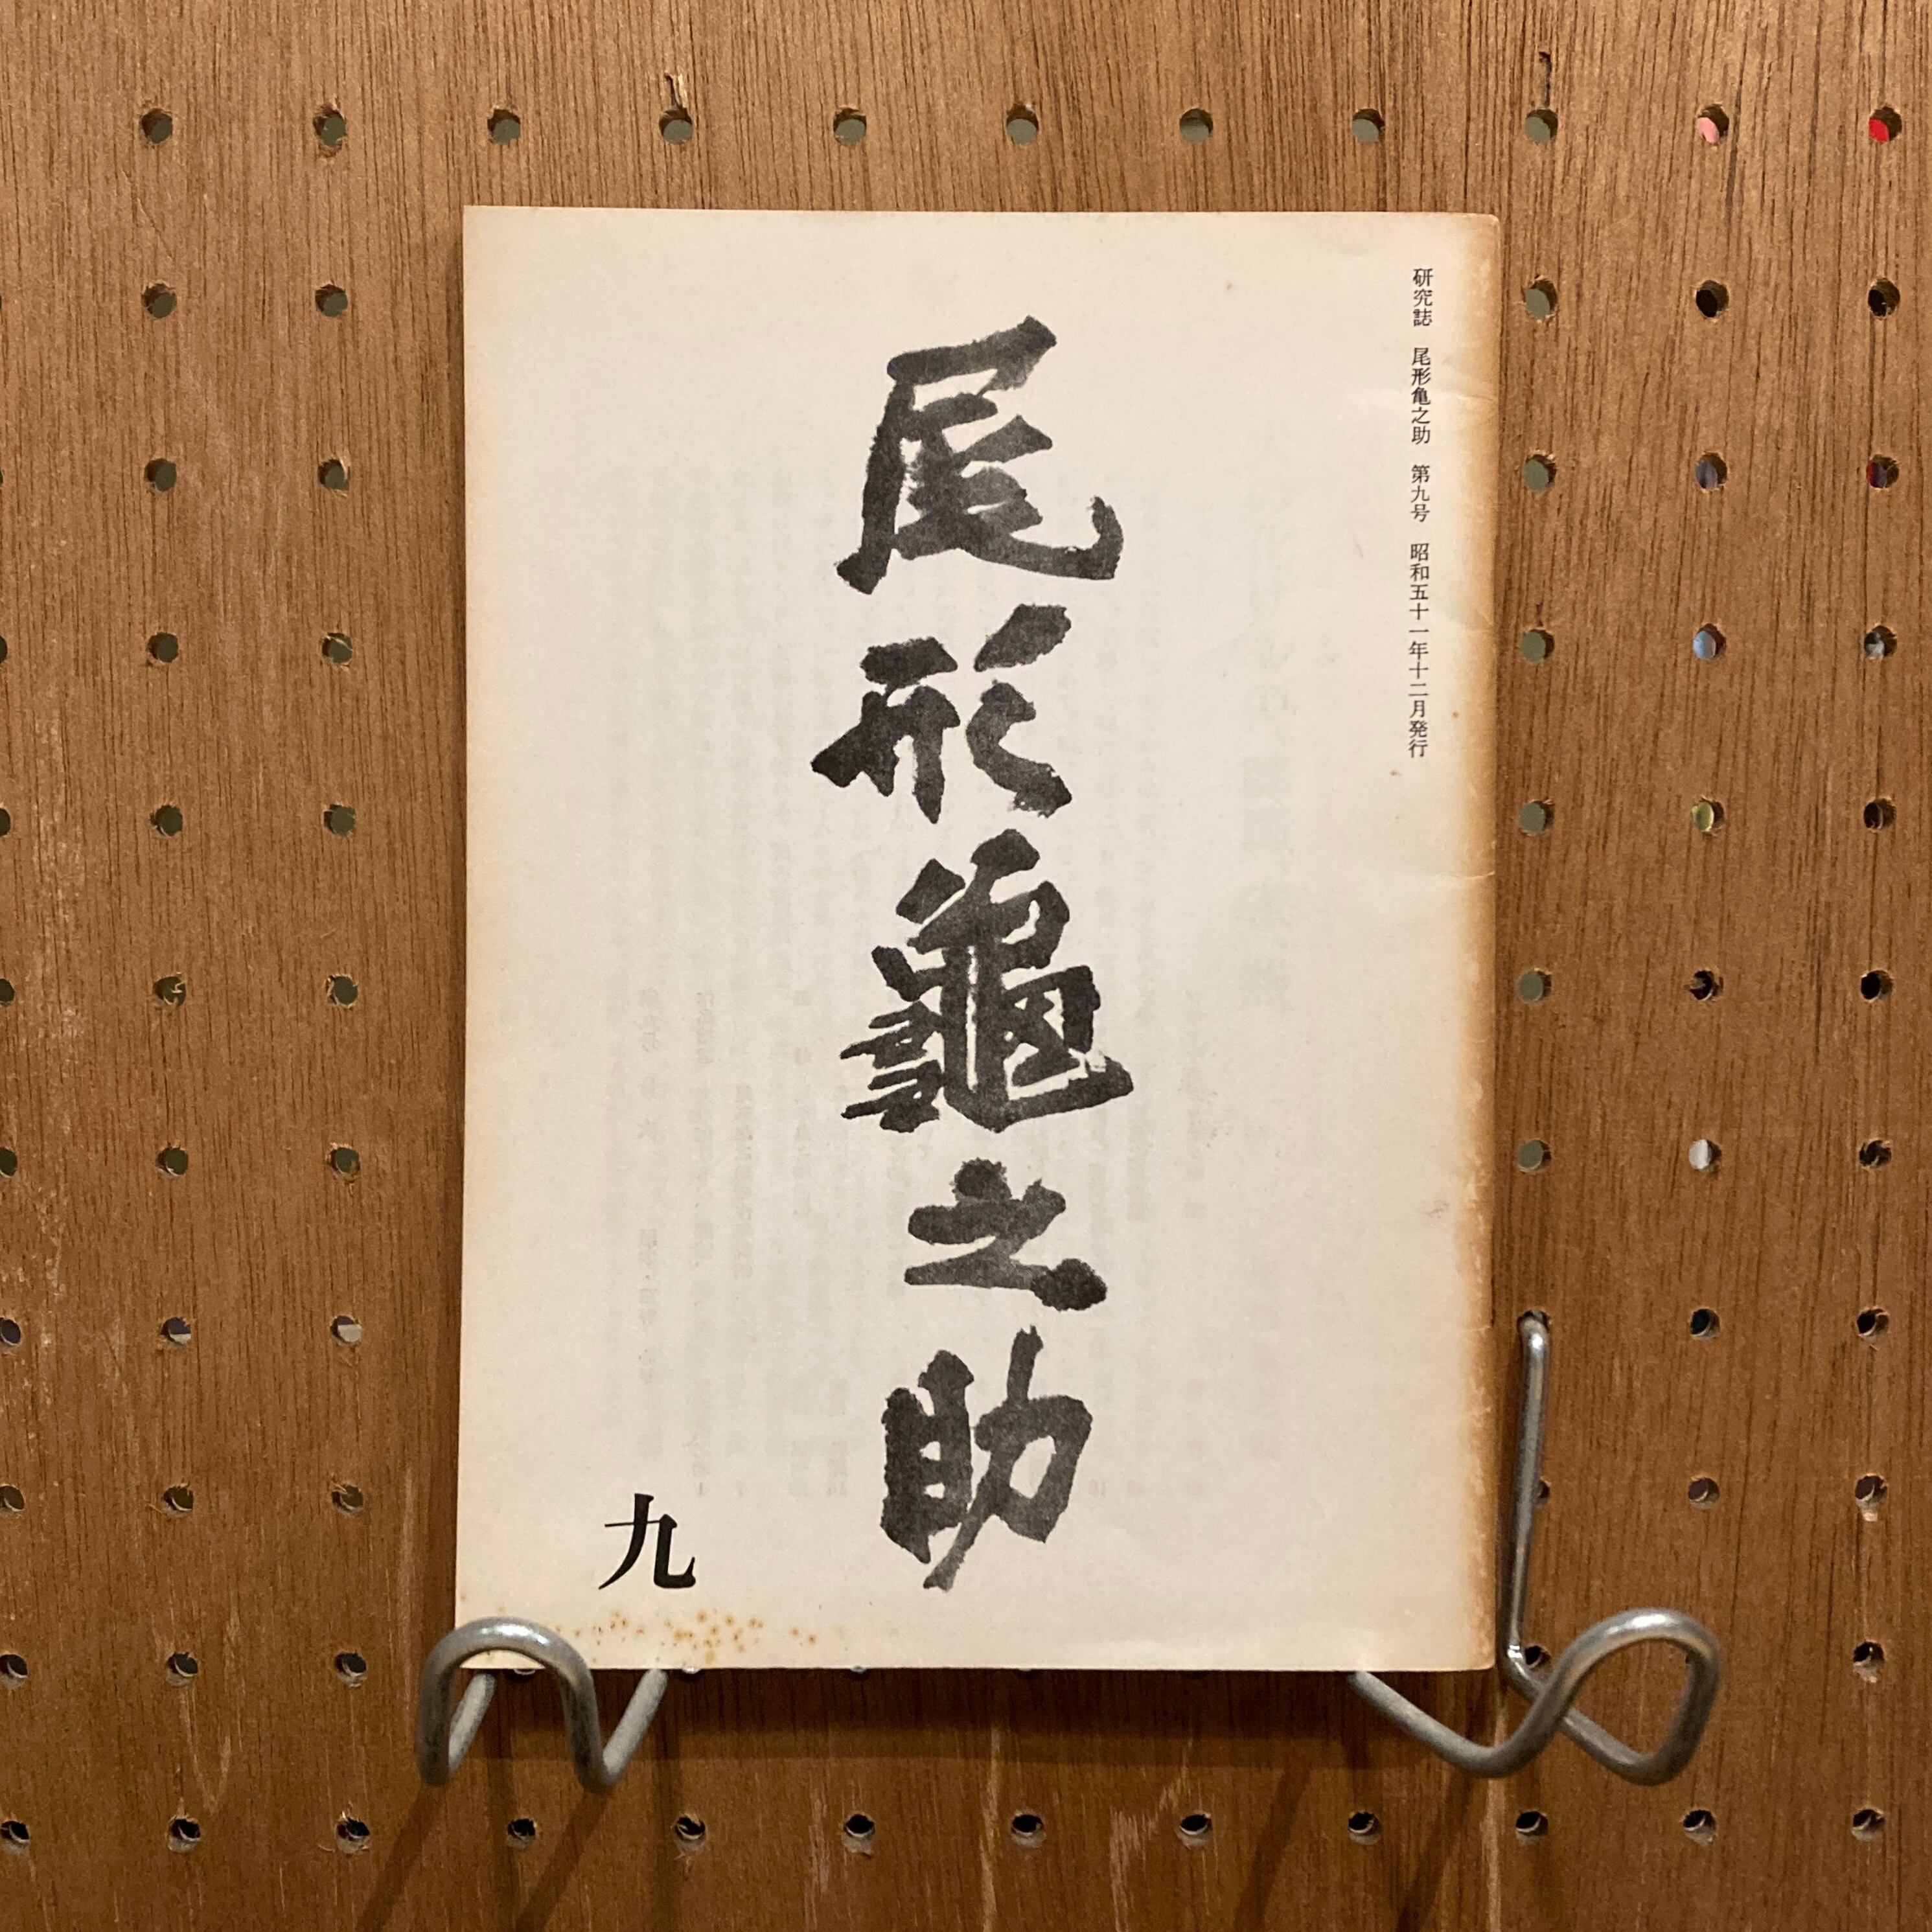 研究誌　尾形亀之助　第九号　昭和五十一年十二月発行
尾形龜之助
九